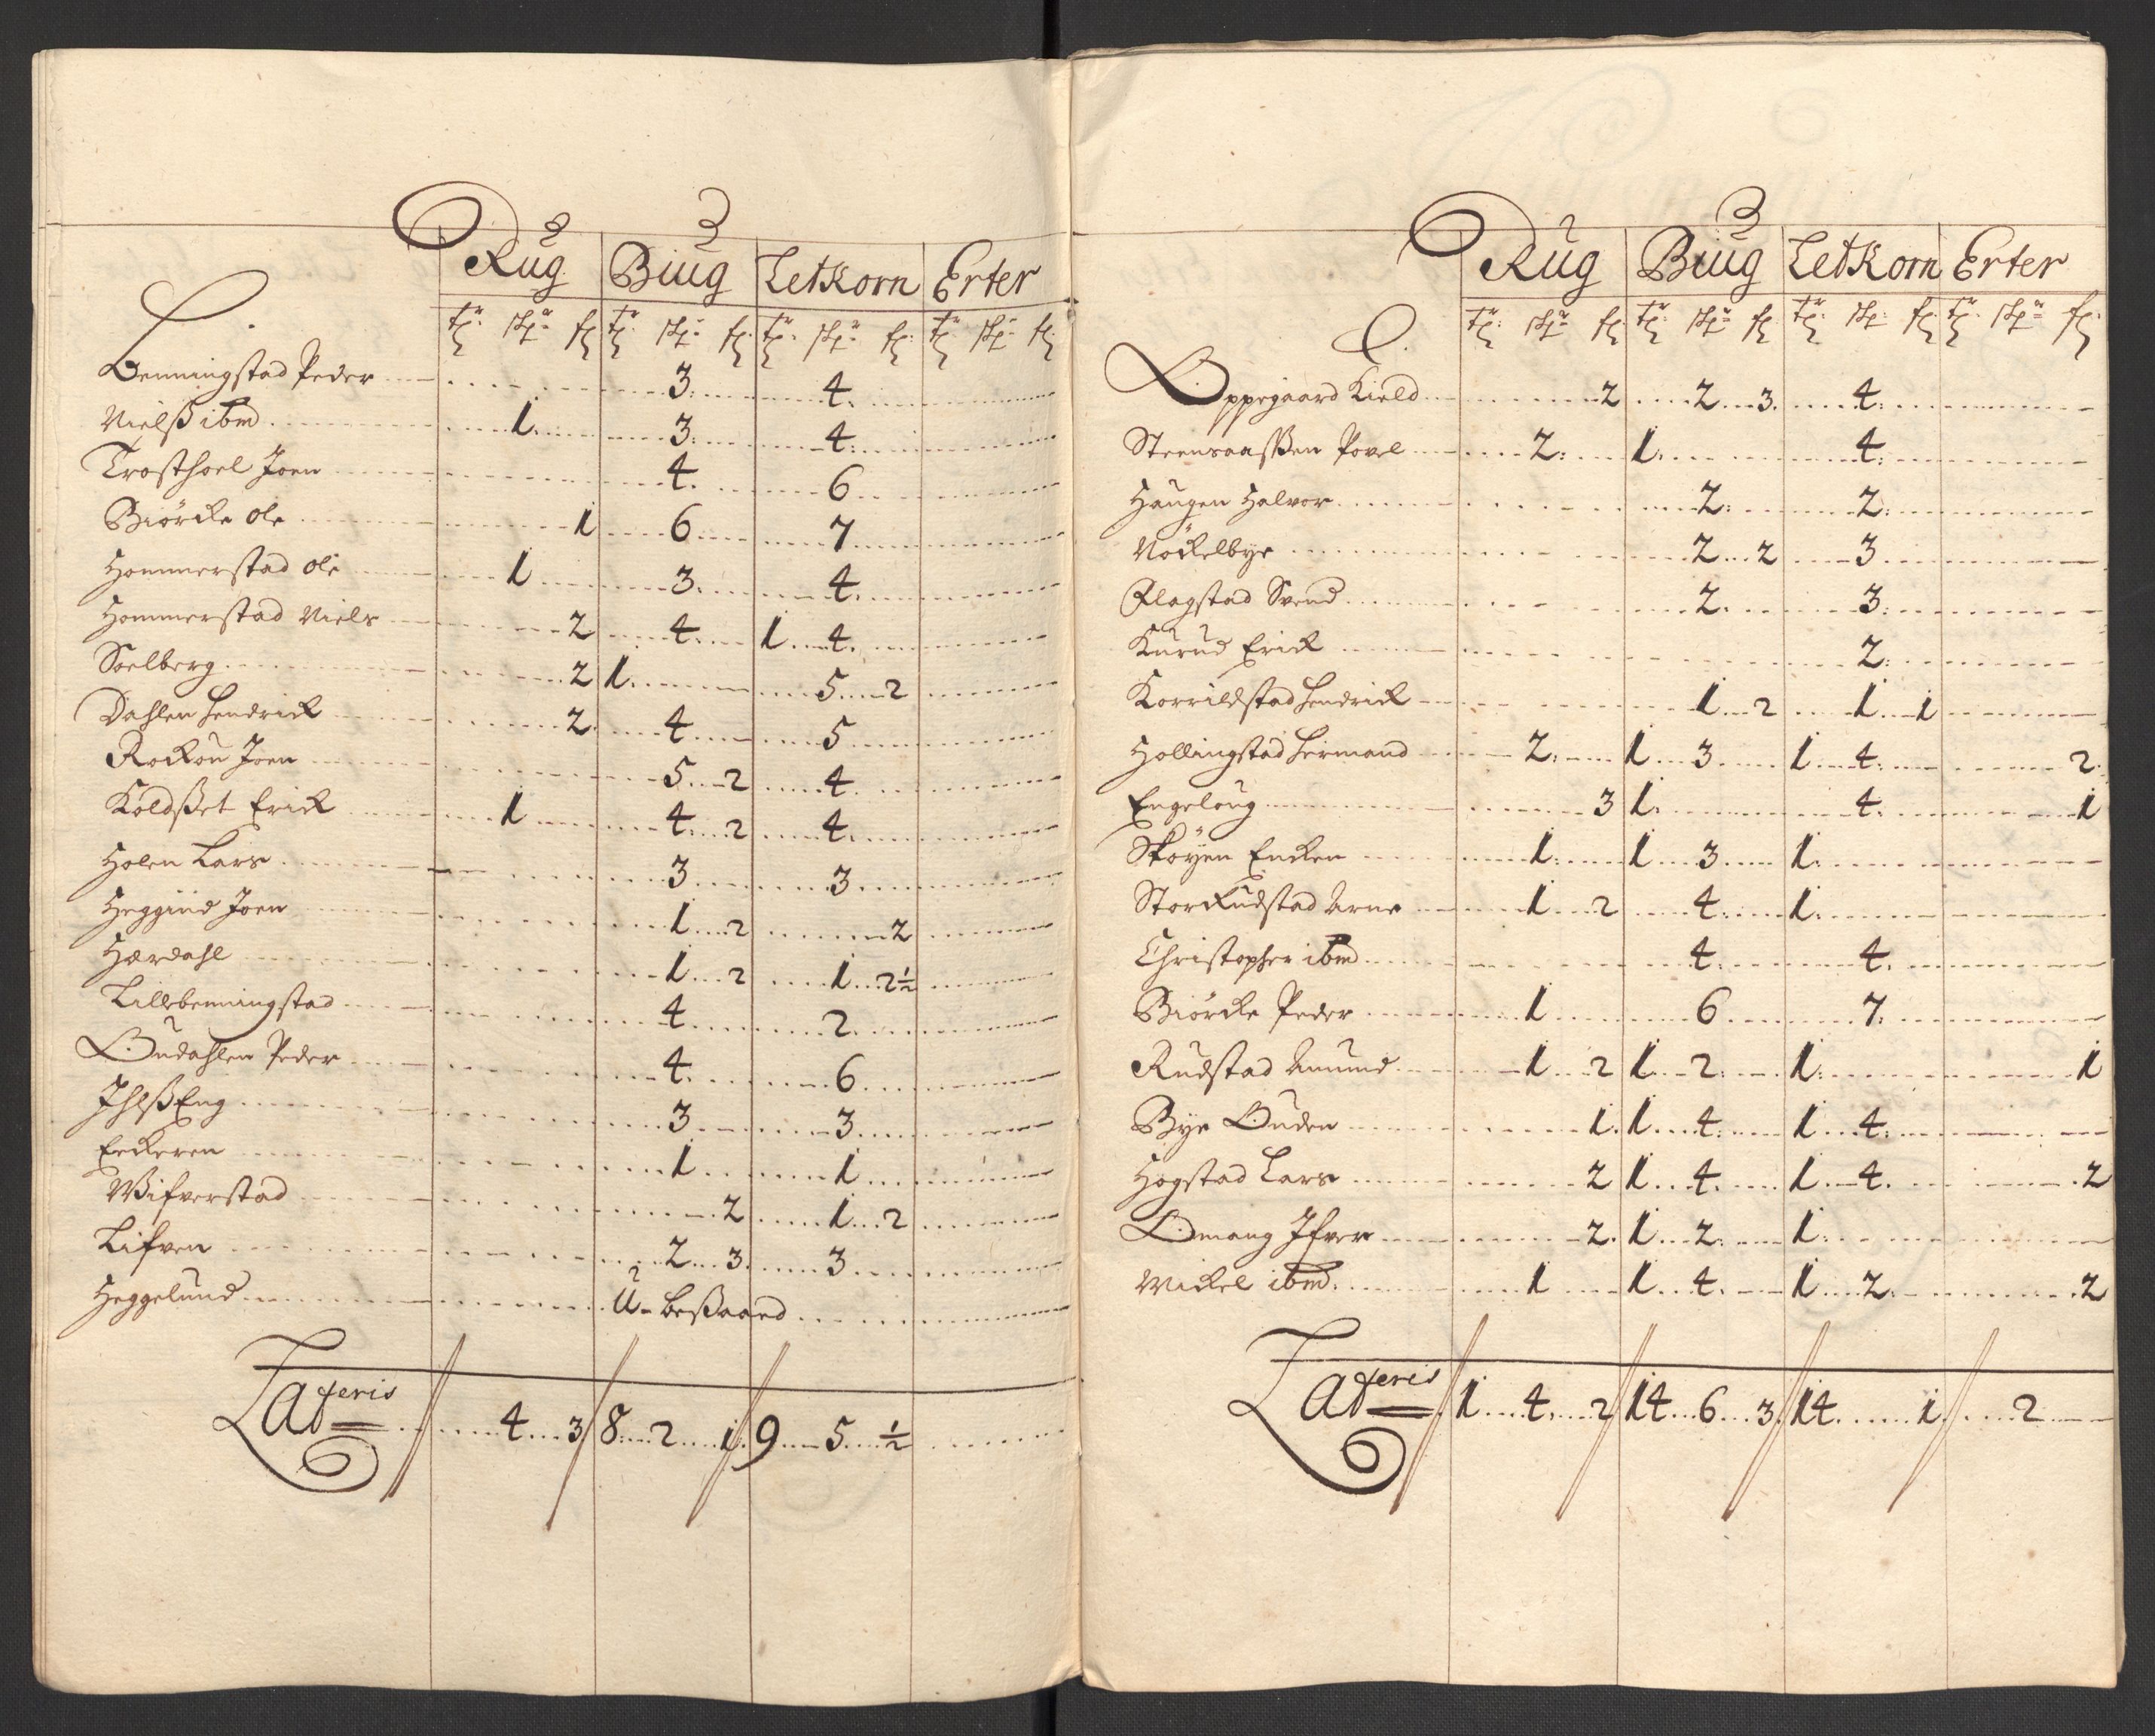 Rug Biug Letkorn Erter
tr skp fr tr skp fr tr skp fr tr skp fr
Benningstad Peder 3 4
Nielß ibm 1 3 4
Trosthoel Joen 4 6
Biörcke Ole 1 6 7
Hommerstad Ole 1 3 4
Hommerstad Niels 2 4 1 4
Soelberg 2 1 5 2
Dahlen Hendrick 2 4 5
Rockou Joen 5 2 4
Koldßet Erick 1 4 2 4
Holen Lars 3 3
Heggind Joen 1 2 2
Hærdahl 1 2 1 2½
Lillebenningstad 4 2
Oudahlen Peder 4 6
IhlßEng 3 3
Eeckeren 1 1
Wifverstad 2 1 2
Lifven 2 3 3
Heggelund U-beßaaed
Lateris 4 3 8 2 1 9 5 ½
Rug Biug Letkorn Erter
tr skp fr tr skp fr tr skp fr tr skp fr
Oppegaard Kield 2 2 3 4
Steensaaßen Povel 2 1 4
Haugen Halvor 2 2
Nöckelbye 2 2 3
Flagstad Svend 2 3
Kurud Erick 2
Korrildstad Hendrick 1 2 1 1
Hollingstad Hermand 2 1 3 1 4 2
Engeloug 3 1 4 1
Skoÿen Encken 1 1 3 1
Storckudstad Arne 1 2 4 1
Christopher ibm 4 4
Biörcke Peder 1 6 7
Rudstad Amund 1 2 1 2 1 1
Bye Ouden 1 1 4 1 4
Hogstad Lars 2 1 4 1 4 2
Omang Ifver 2 1 2 1
Mickel ibm 1 1 4 1 2 2
Lateris 1 4 2 14 6 3 14 1 2